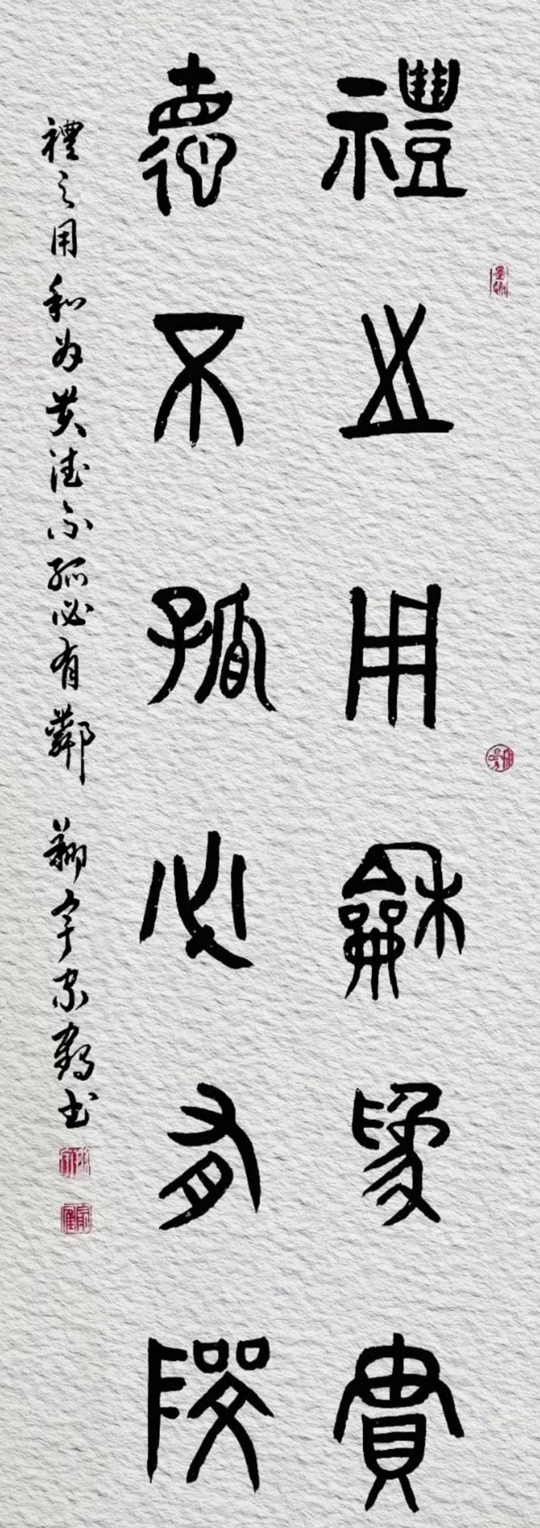 禮之用龢為貴
德不孤必有鄰
禮之用和為貴德不孤必有鄰
書